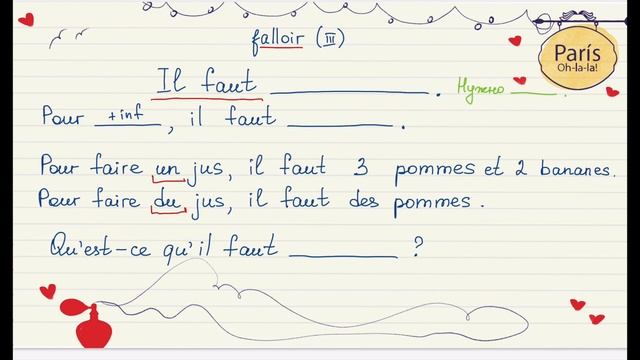 falloir (III)
París
Oh-la-la!
Il faut ___________.
Нужно ______.
Pour +inf, il faut ________.
Pour faire un jus, il faut 3 pommes et 2 bananes.
Pour faire du jus, il faut des pommes.
Qu'est-ce qu'il faut ________ ?